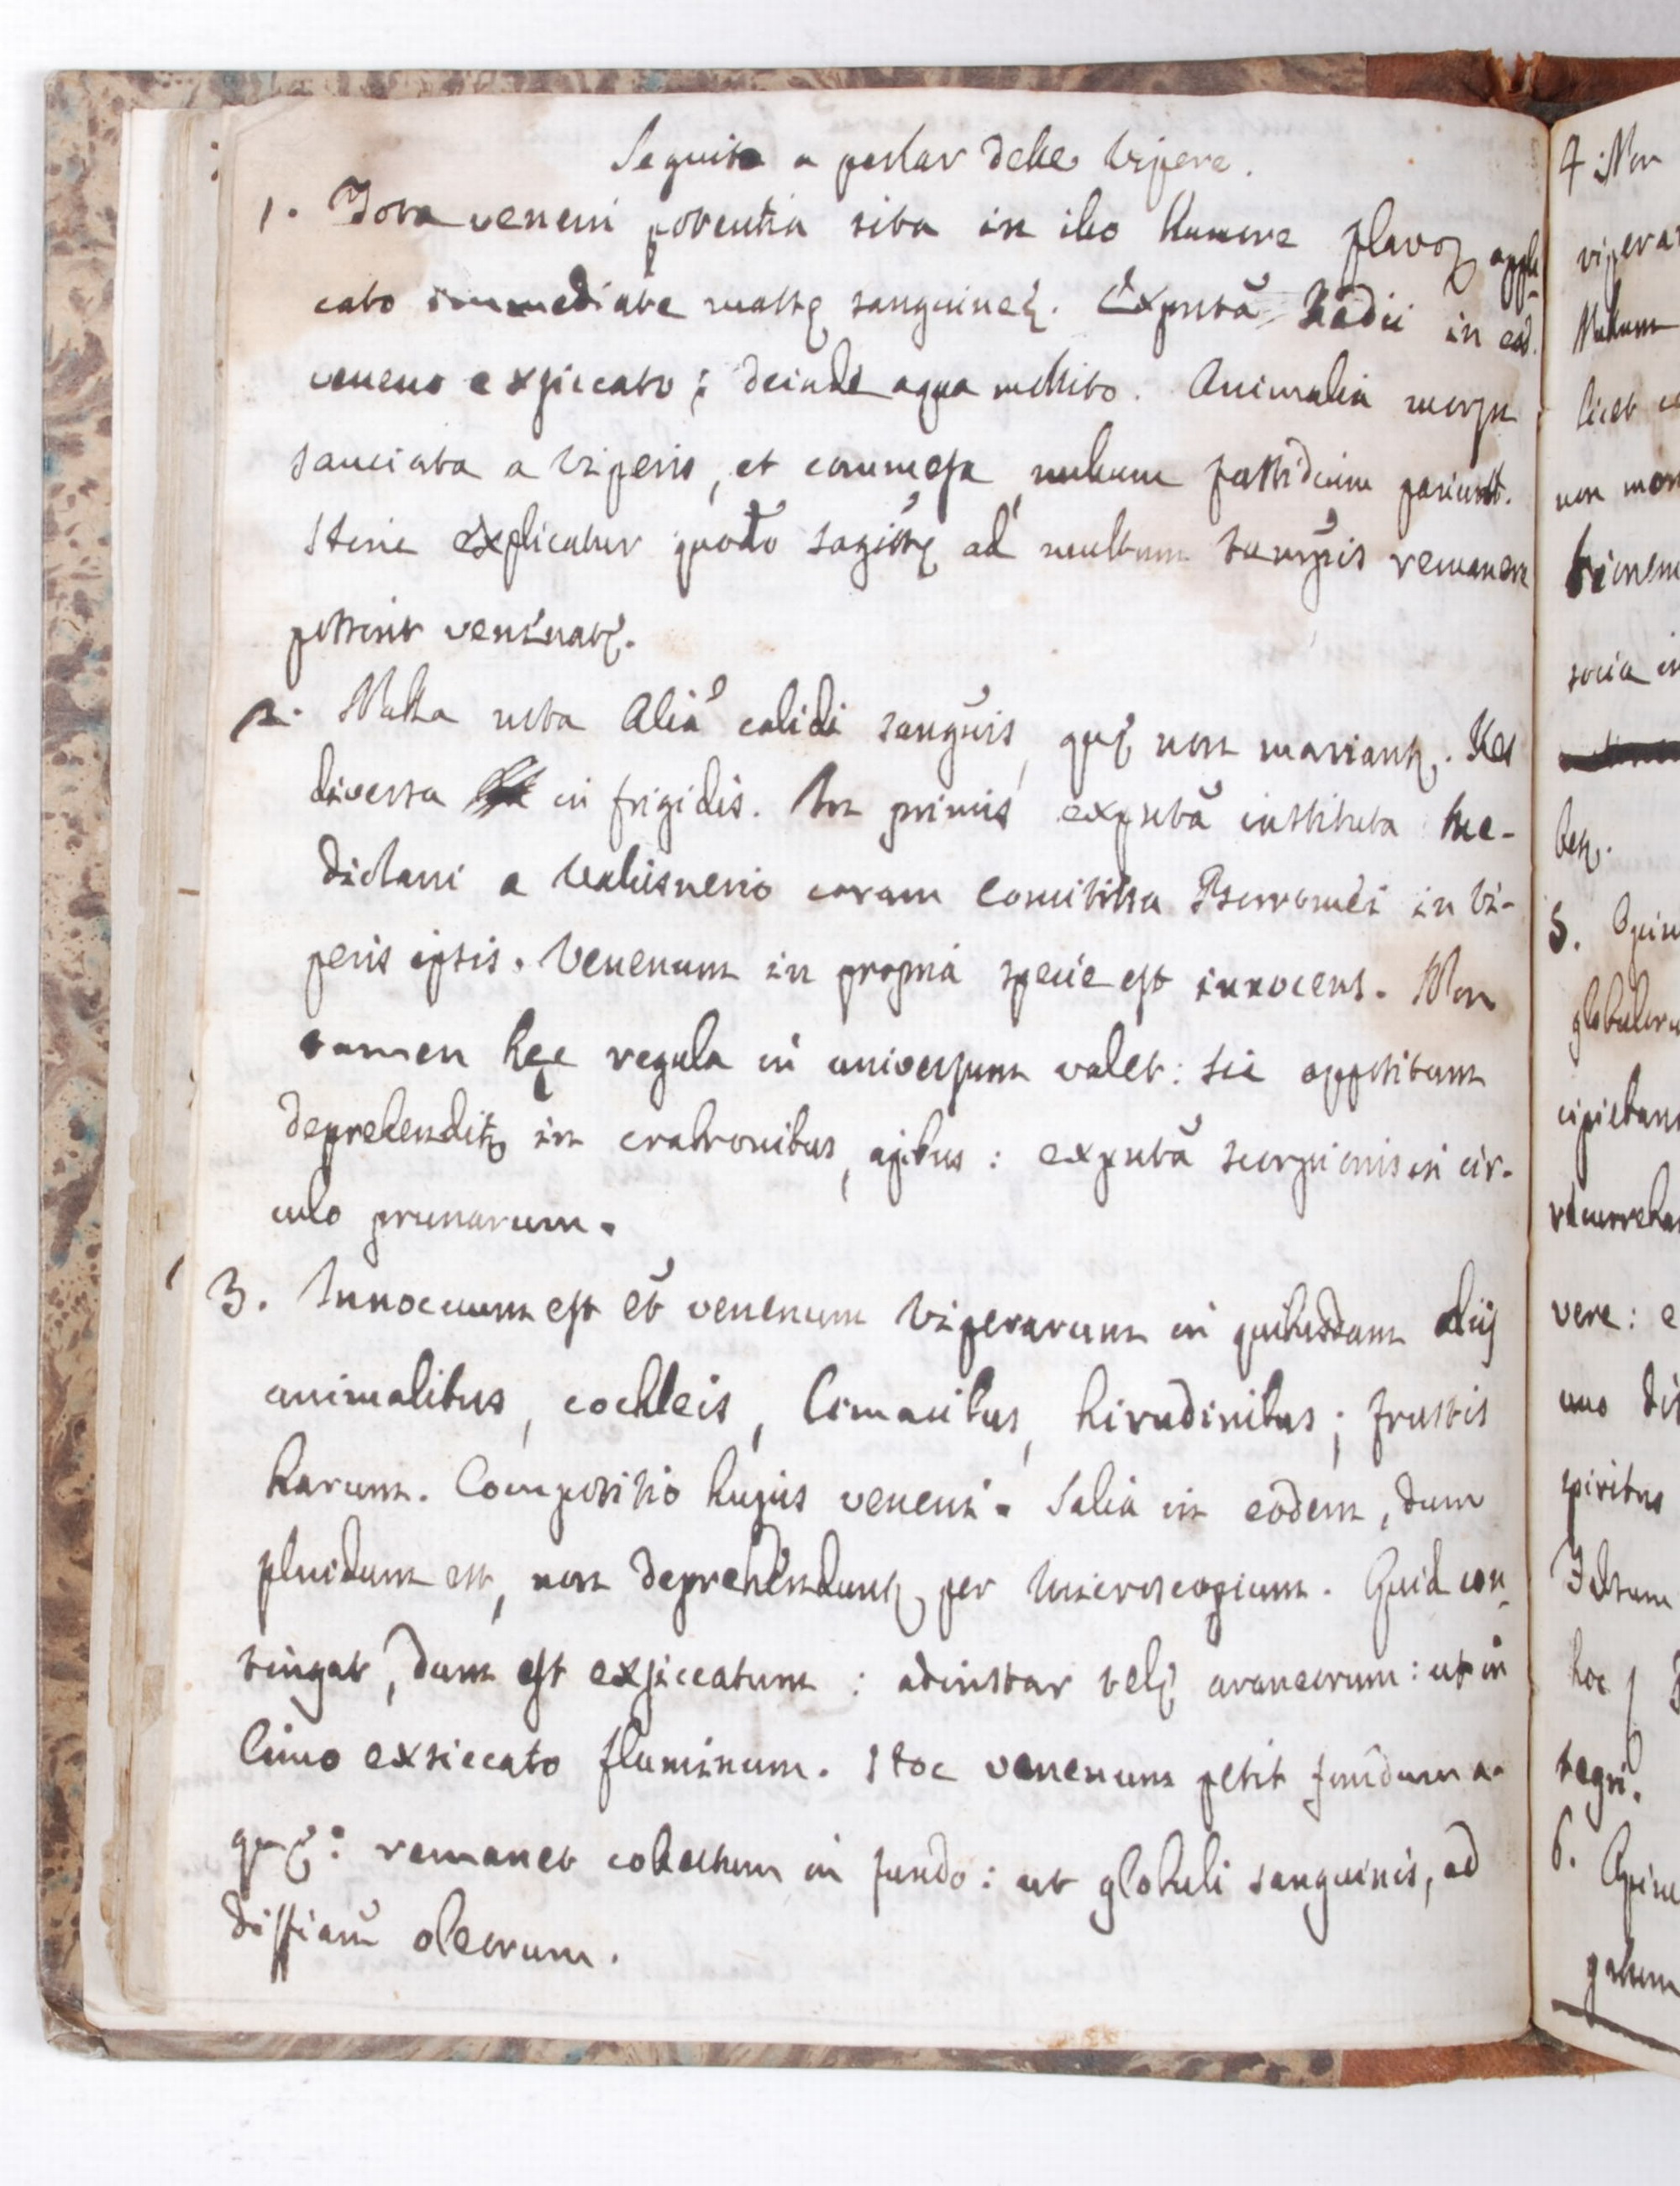 Seguita a parlar delle Vipere.
1. Tota veneni potentia sita in illo humore flavo, appli-
cato immediatè massę sanguineę. Exp͞mta Redii in eod.
veneno exsiccato; deinde aqua mollito. Animalia morsu
sauciata a Viperis, et commesa, nullum fastidium pariunt.
Hinc explicatur quodo sagittę ad multum temp͞is remanere
possint venenatę.
2. Nulla nota Alia calidi sang͞uis, quę non moriant͞. Res
diversa in frigidis. In primis exp͞mta instituta Me-
diolani a Valisnerio coram Comitissa Borromei in Vi-
peris ipsis. Venenum in propria specie est innocens. Non
tamen hęc regula in universum valet: sic oppositum
deprehendit͞ in crabronibus, apibus: exp͞mta scorpionis in cir-
culo prunarum.
3. Innocuum est et͞ venenum Viperarum in quibusdam aliis
animalibus, cochleis, limacibus, hirudinibus; frustis
harum. Compositio hujus veneni. Salia in eodem, dum
fluidum est, non deprehendunt͞ per Microscopium. Quid con-
tingat, dum est exsiccatum: ad instar telę araneorum: ut in
limo exsiccato fluminum. Hoc venenum petit fundum a-
quę: remanet collectum in fundo: ut globuli sanguinis, ad
diffiam͞ oleorum.
4. Non
vipera
Nullum
licet
non mor
socia in
5.
globuloru
cipieban
vere: e
uno
spiritus
hoc
tegri.
6.